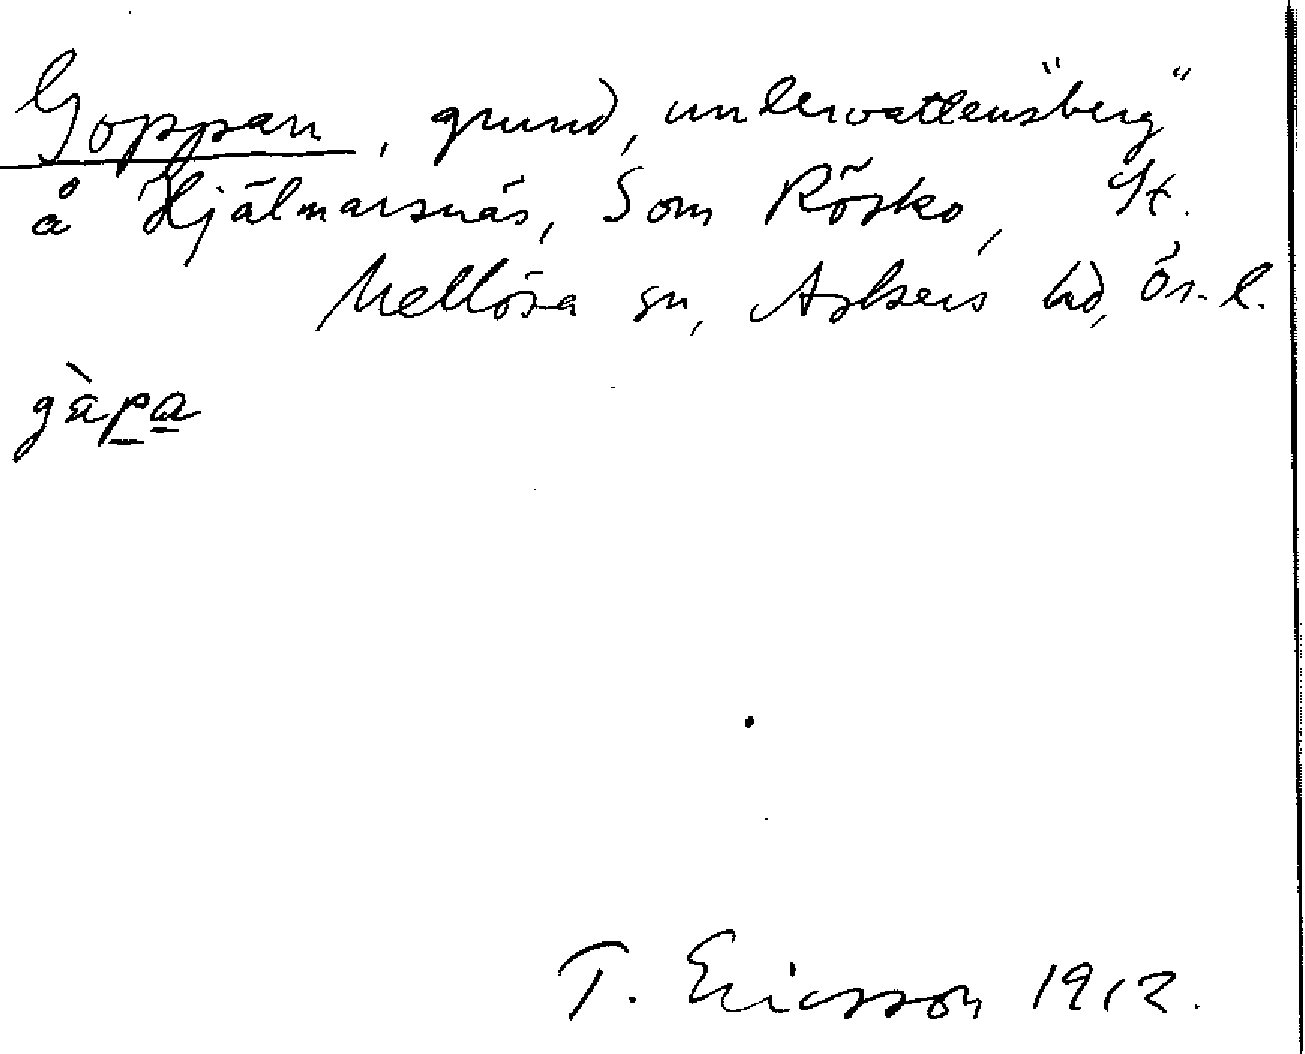 Goppan, grund, undervattens"berg"
å Hjälmarsnäs, Som Röskö, St.
Mellösa sn, Askers hd, Ör. l.
gàpa
T. Ericsson 1912.